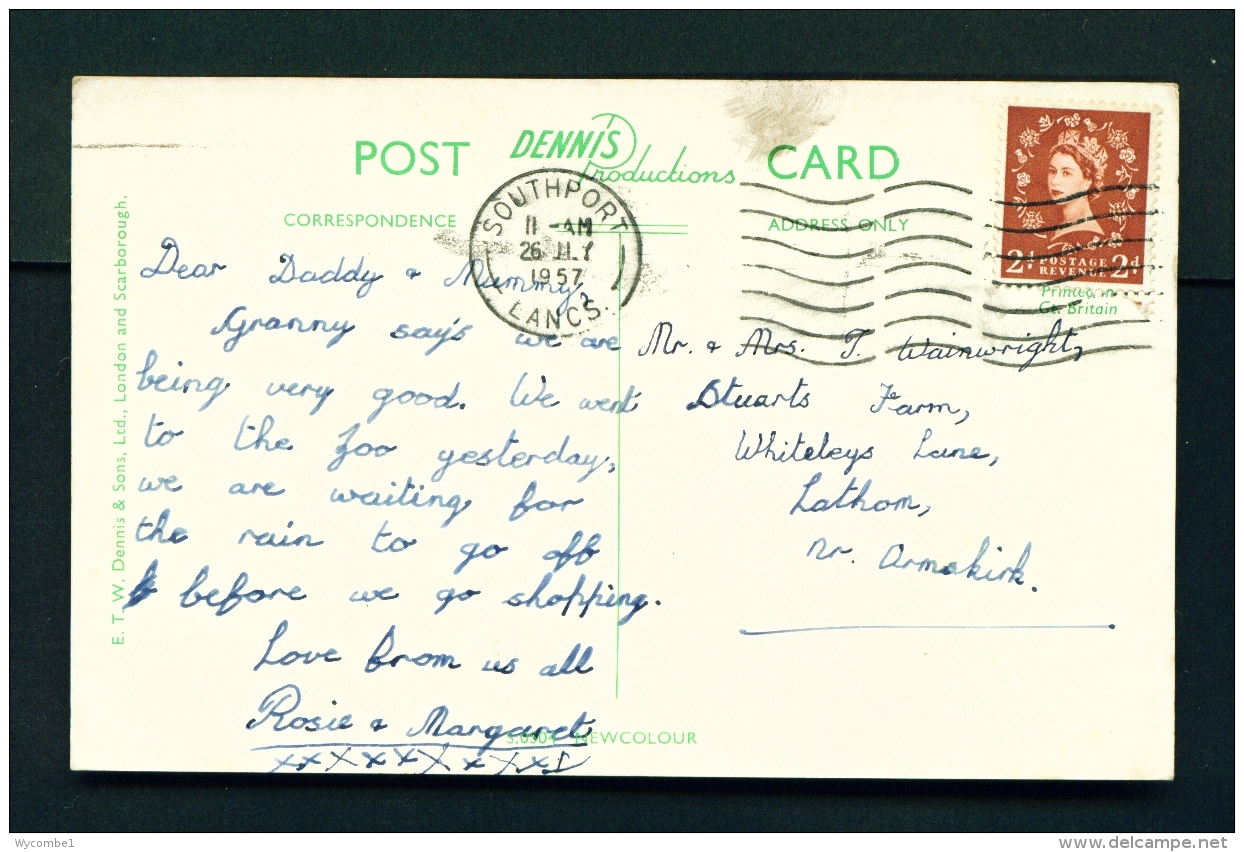 POST DENNIS Productions CARD
CORRESPONDENCE
ADDRESS ONLY
SOUTHPORT
11 - AM
26 JLY
1957
LANCS.
2d. POSTAGE REVENUE 2d.
Printed in
Gt. Britain
E. T. W. Dennis & Sons, Ltd., London and Scarborough.
Dear Daddy & Mummy,
Granny say's we are
being very good. We went
to the Zoo yesterday,
we are waiting for
the rain to go off
before we go shopping.
Love from us all
Rosie & Margaret
Mr. & Mrs. T. Wainwright,
Stuarts Farm,
Whiteleys Lane,
Lathom,
nr. Ormskirk.
NEWCOLOUR
Wycombe1
www.delcampe.net